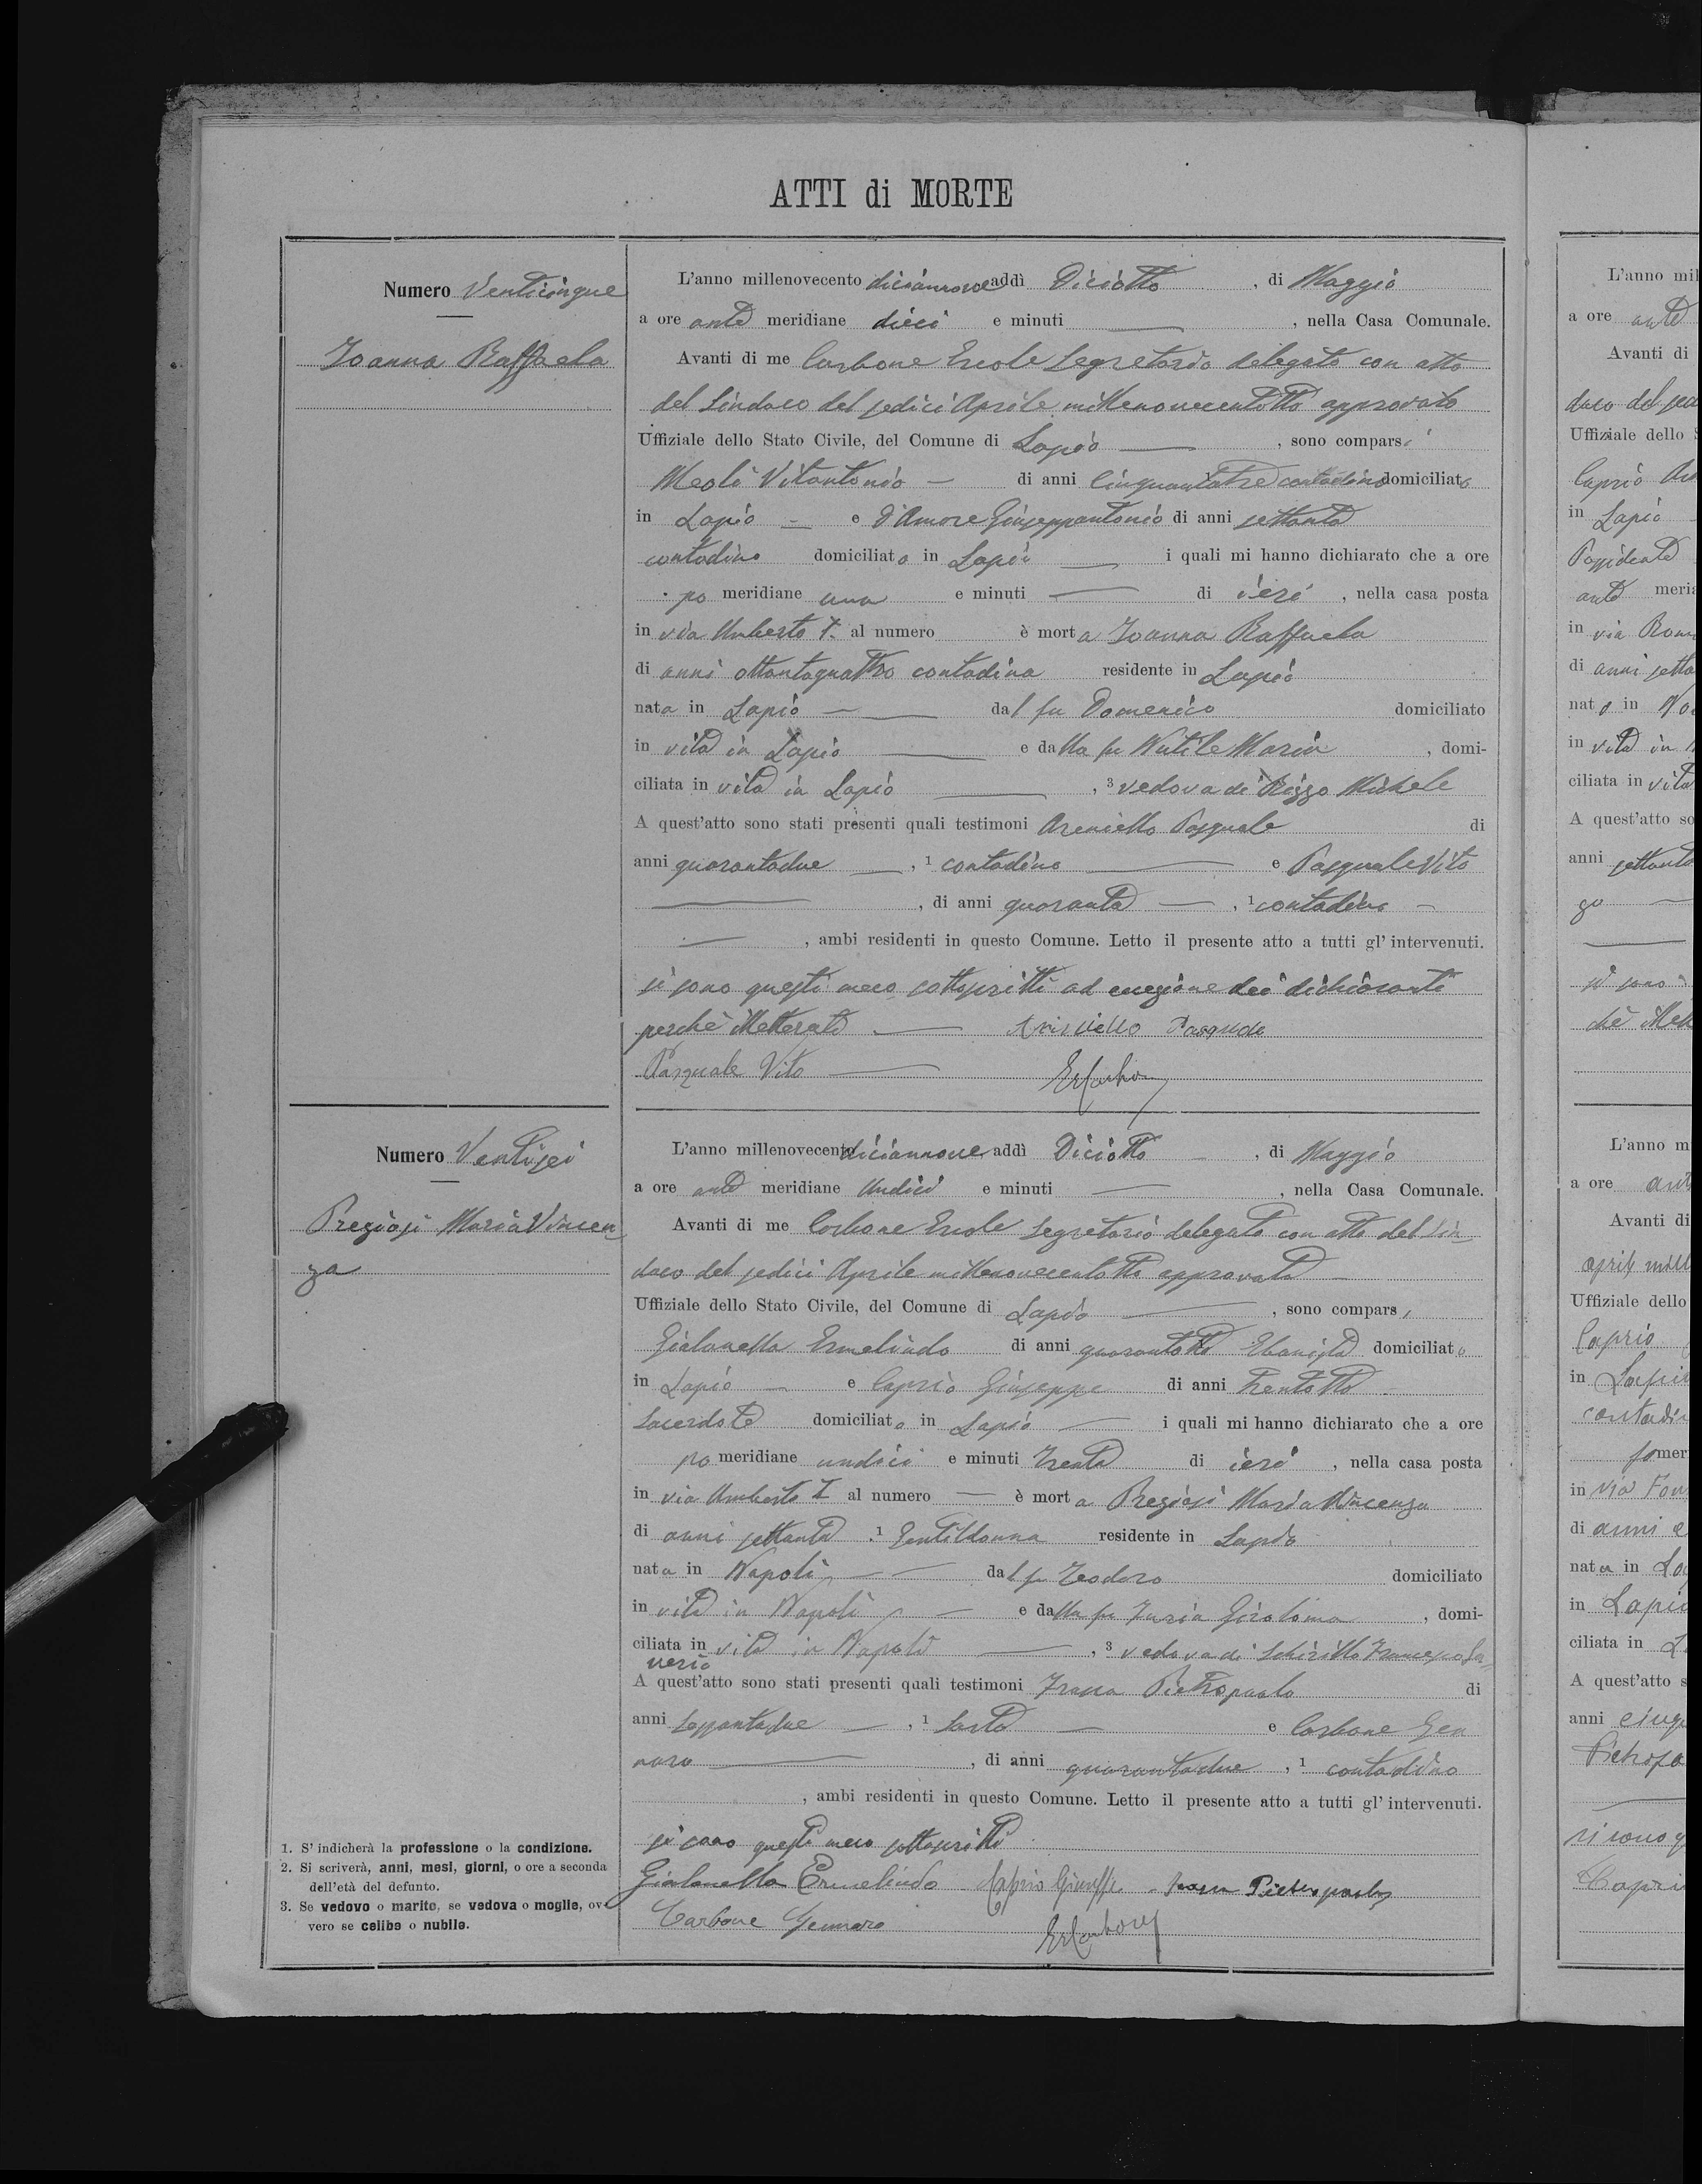 ATTI di MORTE
Numero Venticinque
Joanna Raffaela
L'anno millenovecento diciannove addì Diciotto, di Maggio
a ore ante meridiane dieci e minuti —, nella Casa Comunale.
Avanti di me Carbone Ercole Segretario delegato con atto
del Sindaco del sedici Aprile millenovecentotto approvato
Uffiziale dello Stato Civile, del Comune di Lapio —, sono comparsi
Meoli Vitantonio — di anni cinquantatre contadino domiciliato
in Lapio — e d'Amore Giuseppantonio di anni settanta
contadino domiciliato in Lapio — i quali mi hanno dichiarato che a ore
po meridiane una e minuti — di ieri, nella casa posta
in via Umberto I. al numero è morta Joanna Raffaela
di anni ottantaquattro contadina residente in Lapio
nata in Lapio — dal fu Domenico domiciliato
in vita in Lapio — e dalla fu Nutile Maria, domi-
ciliata in vita in Lapio —, 3 vedova di Rizzo Michele
A quest'atto sono stati presenti quali testimoni Areniello Pasquale di
anni quarantadue —, 1 contadino — e Pasquale Vito
—, di anni quaranta —, 1 contadino —
—, ambi residenti in questo Comune. Letto il presente atto a tutti gl' intervenuti.
si sono questi meco sottoscritti ad eccezione dei dichiaranti
perchè illetterati — Pasquale
Pasquale Vito — ErCarbone
Numero Ventisei
Preziosi Maria Vincen
za
L'anno millenovecento diciannove addì Diciotto —, di Maggio
a ore ante meridiane Undici e minuti —, nella Casa Comunale.
Avanti di me Carbone Ercole Segretario delegato con atto del Sin
daco del sedici Aprile millenovecentotto approvato —
Uffiziale dello Stato Civile, del Comune di Lapio —, sono comparsi
Gialanella Ermelindo di anni quarantotto Ebanista domiciliato
in Lapio — e Caprio Giuseppe di anni trentotto —
Sacerdote domiciliato in Lapio — i quali mi hanno dichiarato che a ore
po meridiane undici e minuti trenta di ieri, nella casa posta
in via Umberto I al numero — è morta Preziosi Maria Vincenza
di anni settanta 1 Gentildonna residente in Lapio
nata in Napoli — dal fu Teodoro domiciliato
in vita in Napoli — e dalla fu Girolima, domi-
ciliata in vita in Napoli —, 3 vedova di Schirillo Francesco Sa
verio
A quest'atto sono stati presenti quali testimoni Pietropaolo di
anni sessantadue —, 1 Sarto — e Carbone Gen
naro —, di anni quarantadue, 1 contadino
, ambi residenti in questo Comune. Letto il presente atto a tutti gl' intervenuti.
si sono questi meco sottoscritti
Gialanella Ermelindo Caprio Giuseppe Pietropaolo
Carbone Gennaro ErCarbone
1. S' indicherà la professione o la condizione.
2. Si scriverà, anni, mesi, giorni, o ore a seconda
dell'età del defunto.
3. Se vedovo o marito, se vedova o moglie, ov-
vero se celibe o nubile.
L'anno mil
a ore ante
Avanti di
daco del sed
Uffiziale dello S
Caprio
in Lapio
Possidente
ante meri
in via Roma
di anni setta
nato in
in vita in
ciliata in vita
A quest'atto so
anni settanta
si sono
L'anno m
a ore ant
Avanti di
april mill
Uffiziale dello
Caprio
in Lapio
contadin
pomer
in via Fon
di anni
nata in La
in Lapio
ciliata in L
A quest'atto s
anni cinq
Pietropa
si sono q
Capri